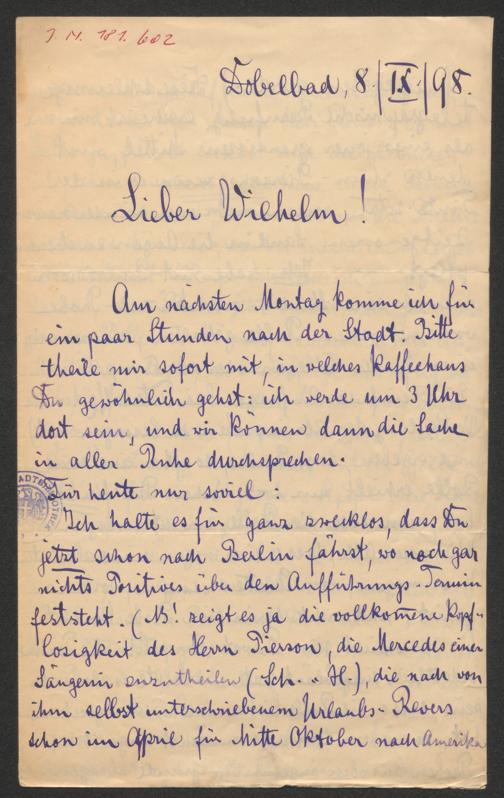 J. N. 181.602
Dobelbad, 8./IX./98.
Lieber Wilhelm!
Am nächsten Montag komme ich für
ein paar Stunden nach der Stadt. Bitte
theile mir sofort mit, in welches Kaffeehaus
Du gewöhnlich gehst: ich werde um 3 Uhr
dort sein, und wir können dann die Sache
in aller Ruhe durchsprechen.
Für heute nur soviel:
Ich halte es für ganz zwecklos, dass Du
jetzt schon nach Berlin fährst, wo noch gar
nichts Positives über den Aufführungs-Termin
feststeht. (NB! zeigt es ja die vollkom̅ene Kopf-
losigkeit des Herrn Pierson, die Mercedes einer
Sängerin zuzutheilen (Sch. - H.), die nach von
ihm selbst unterschriebenem Urlaubs-Revers
schon im April für Mitte Oktober nach Amerika